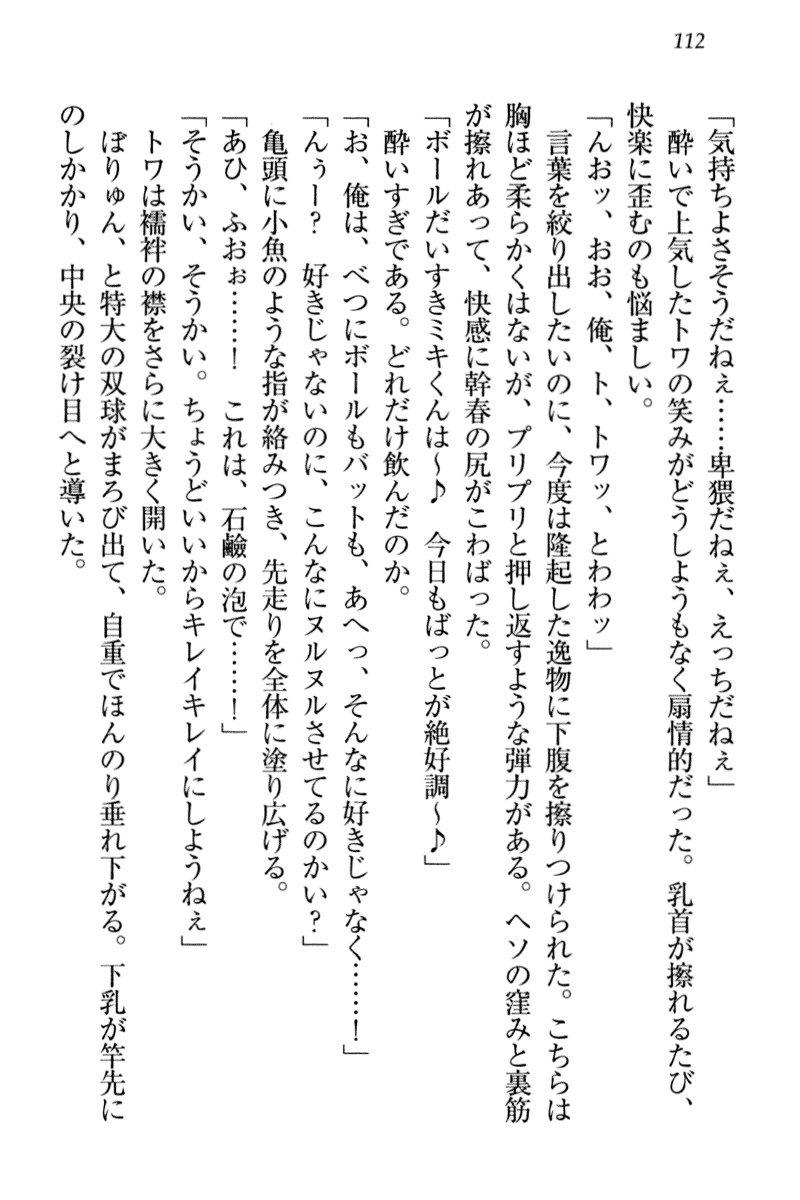 112
「気持ちよさそうだねぇ……卑猥だねぇ、えっちだねぇ」
酔いで上気したトワの笑みがどうしようもなく扇情的だった。乳首が擦れるたび、
快楽に歪むのも悩ましい。
「んおッ、おお、俺、ト、トワッ、とわわッ」
言葉を絞り出したいのに、今度は隆起した逸物に下腹を擦りつけられた。こちらは
胸ほど柔らかくはないが、プリプリと押し返すような弾力がある。ヘソの窪みと裏筋
が擦れあって、快感に幹春の尻がこわばった。
「ボールだいすきミキくんは～♪　今日もばっとが絶好調～♪」
酔いすぎである。どれだけ飲んだのか。
「お、俺は、べつにボールもバットも、あへっ、そんなに好きじゃなく……！」
「んぅー？　好きじゃないのに、こんなにヌルヌルさせてるのかい？」
亀頭に小魚のような指が絡みつき、先走りを全体に塗り広げる。
「あひ、ふおぉ……！　これは、石鹸の泡で……！」
「そうかい、そうかい。ちょうどいいからキレイキレイにしようねぇ」
トワは襦袢の襟をさらに大きく開いた。
ぼりゅん、と特大の双球がまろび出て、自重でほんのり垂れ下がる。下乳が竿先に
のしかかり、中央の裂け目へと導いた。